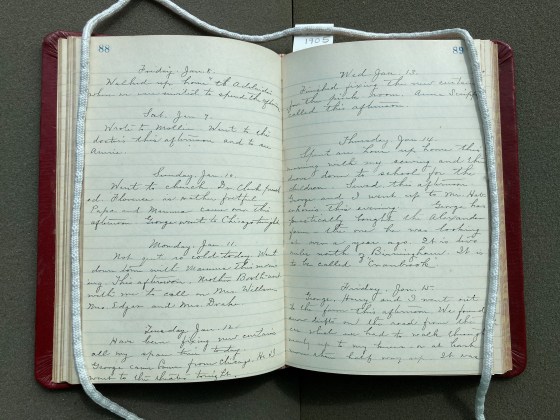 88
Friday Jan 8.
Walked up home
Sat. Jan 9
Wrote to Mother. Went to the
doctor's this afternoon and to see
Annie.
Sunday, Jan. 10.
Went to church. Dr. Clark preach-
ed.
Papa and Mamma came over this
afternoon. George went to Chicago tonight.
Monday, Jan. 11.
Not quite so cold today. Went
down town with Mamma this morn-
ing. This afternoon Booth and
with me to call on Mrs. Wilson,
Mrs. Edgar and Mrs.
Tuesday Jan. 12.
Have been fixing new curtains
all my spare time today.
George came home from Chicago. He & I
went to the theatre tonight.
1905
89
Wed. Jan 13.
Finished fixing the new curtains
for the room. Annie
called this afternoon.
Thursday, Jan. 14.
Spent an hour up home this
morning with my sewing and then
down to school for the
children. Sewed this afternoon.
George and I went up to Mr.
this evening. George has
practically bought the Alexander
farm, the one he was looking
at over a year ago. It is two
miles north of Birmingham. It is
to be called "Cranbrook".
Friday, Jan. 15.
George, Henry and I went out
to the farm this afternoon. We found
drifts on the road from the
car what we had to walk through
nearly up to my knees, or at least
more than half way up. It was